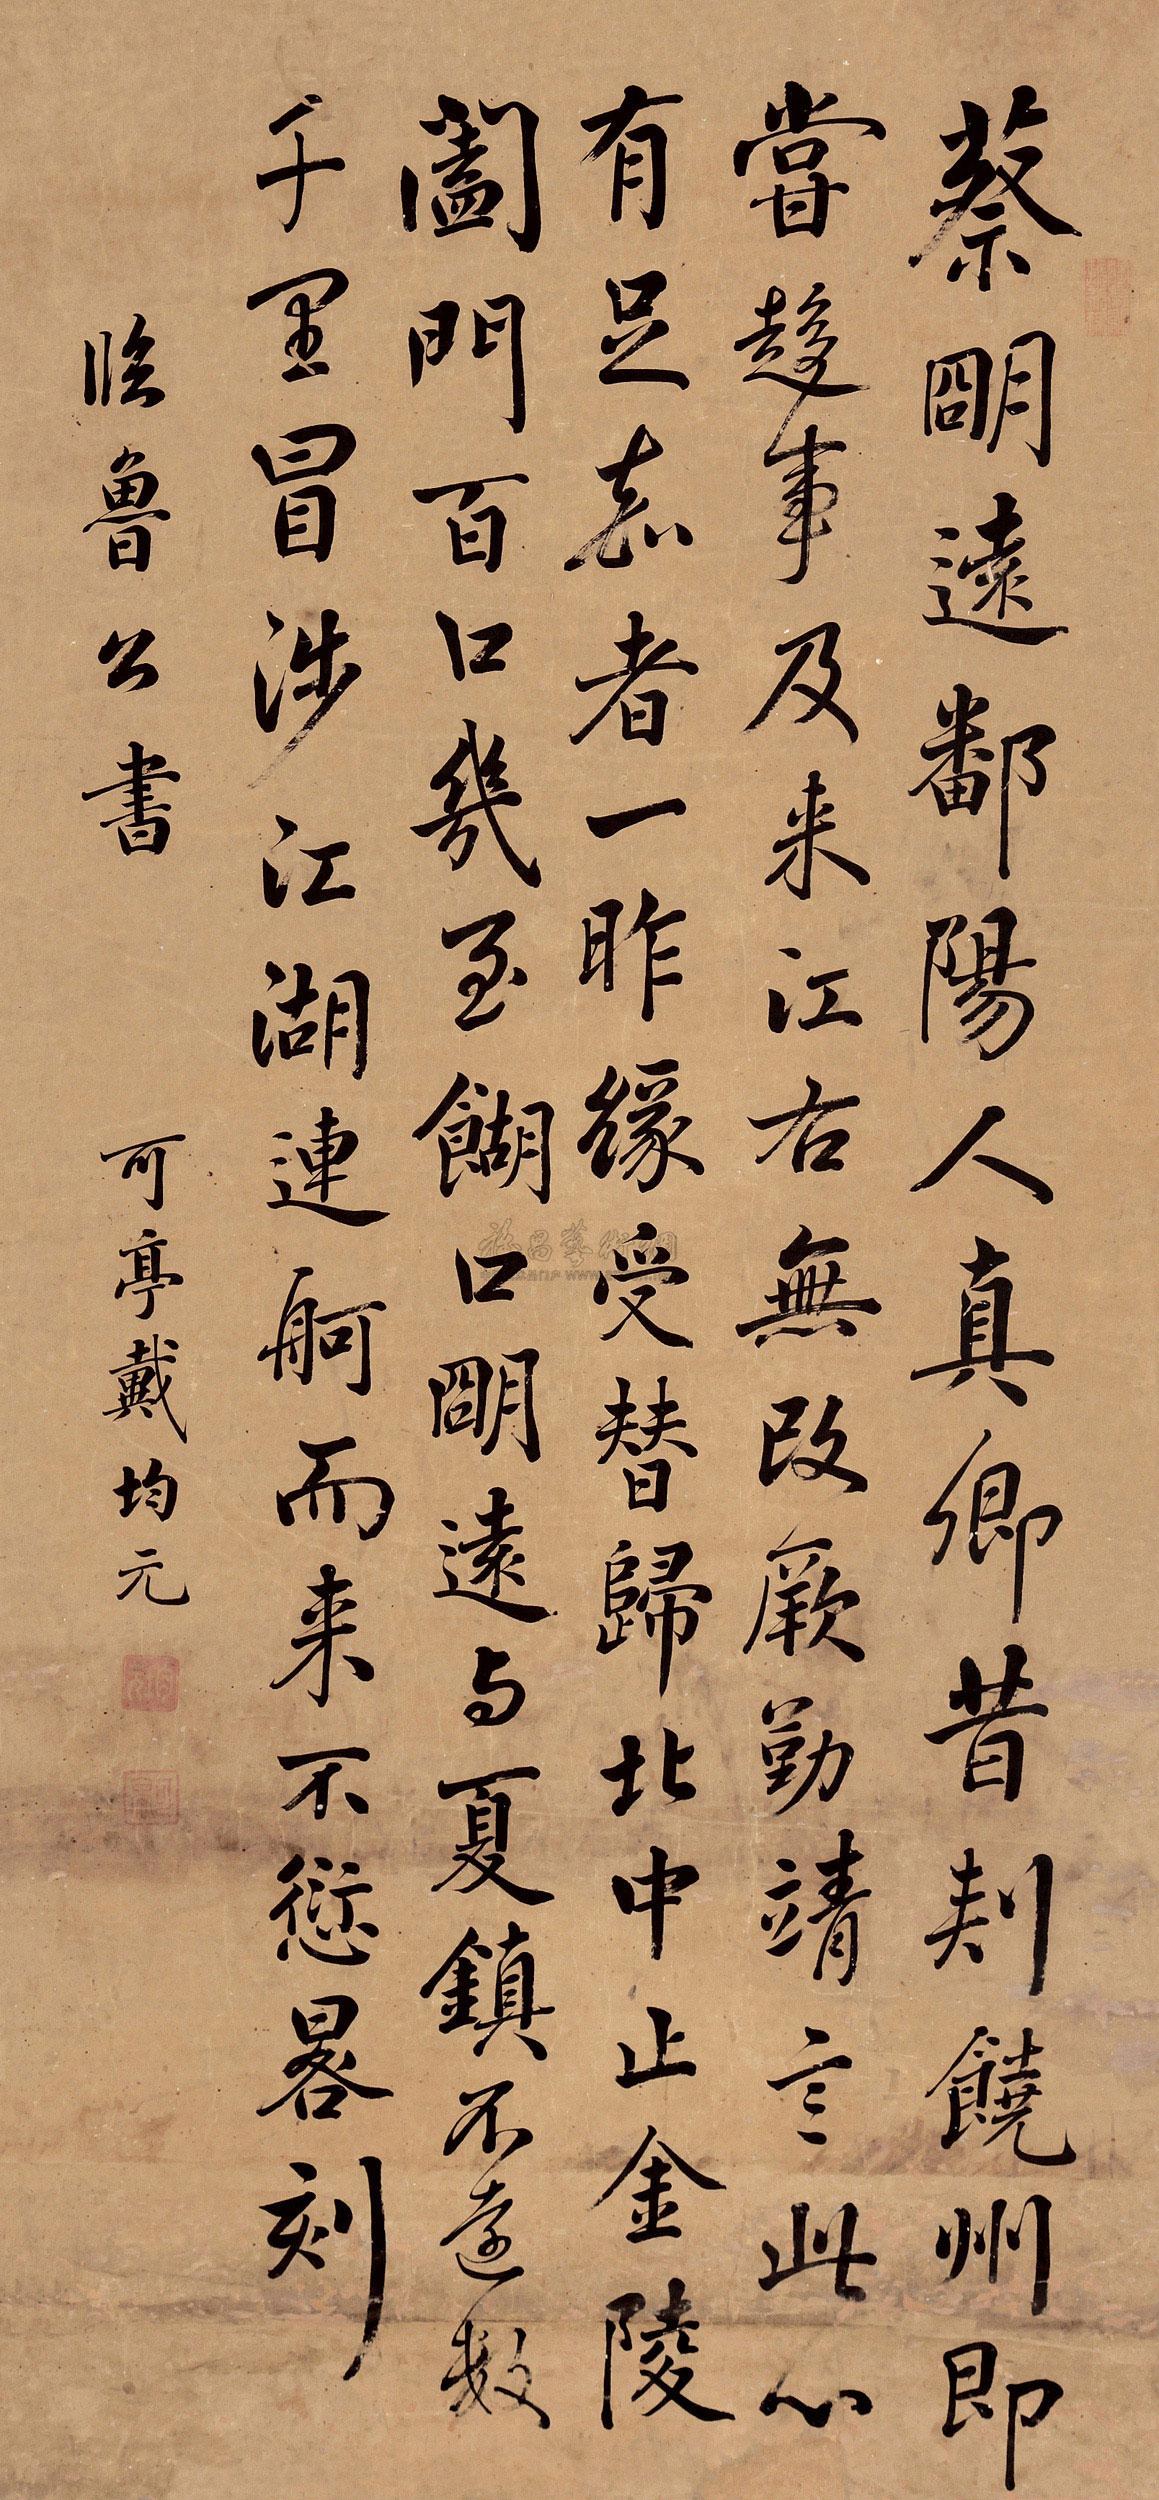 蔡明遠鄱陽人真卿昔刾饒州即
嘗趍事及来江右無改厥勤靖言此心
有足志者一昨緣受替歸北中止金陵
闔門百口幾至餬口明遠与夏鎮不遠数
千里冒涉江湖連舸而来不愆晷刻
臨魯公書
可亭戴均元